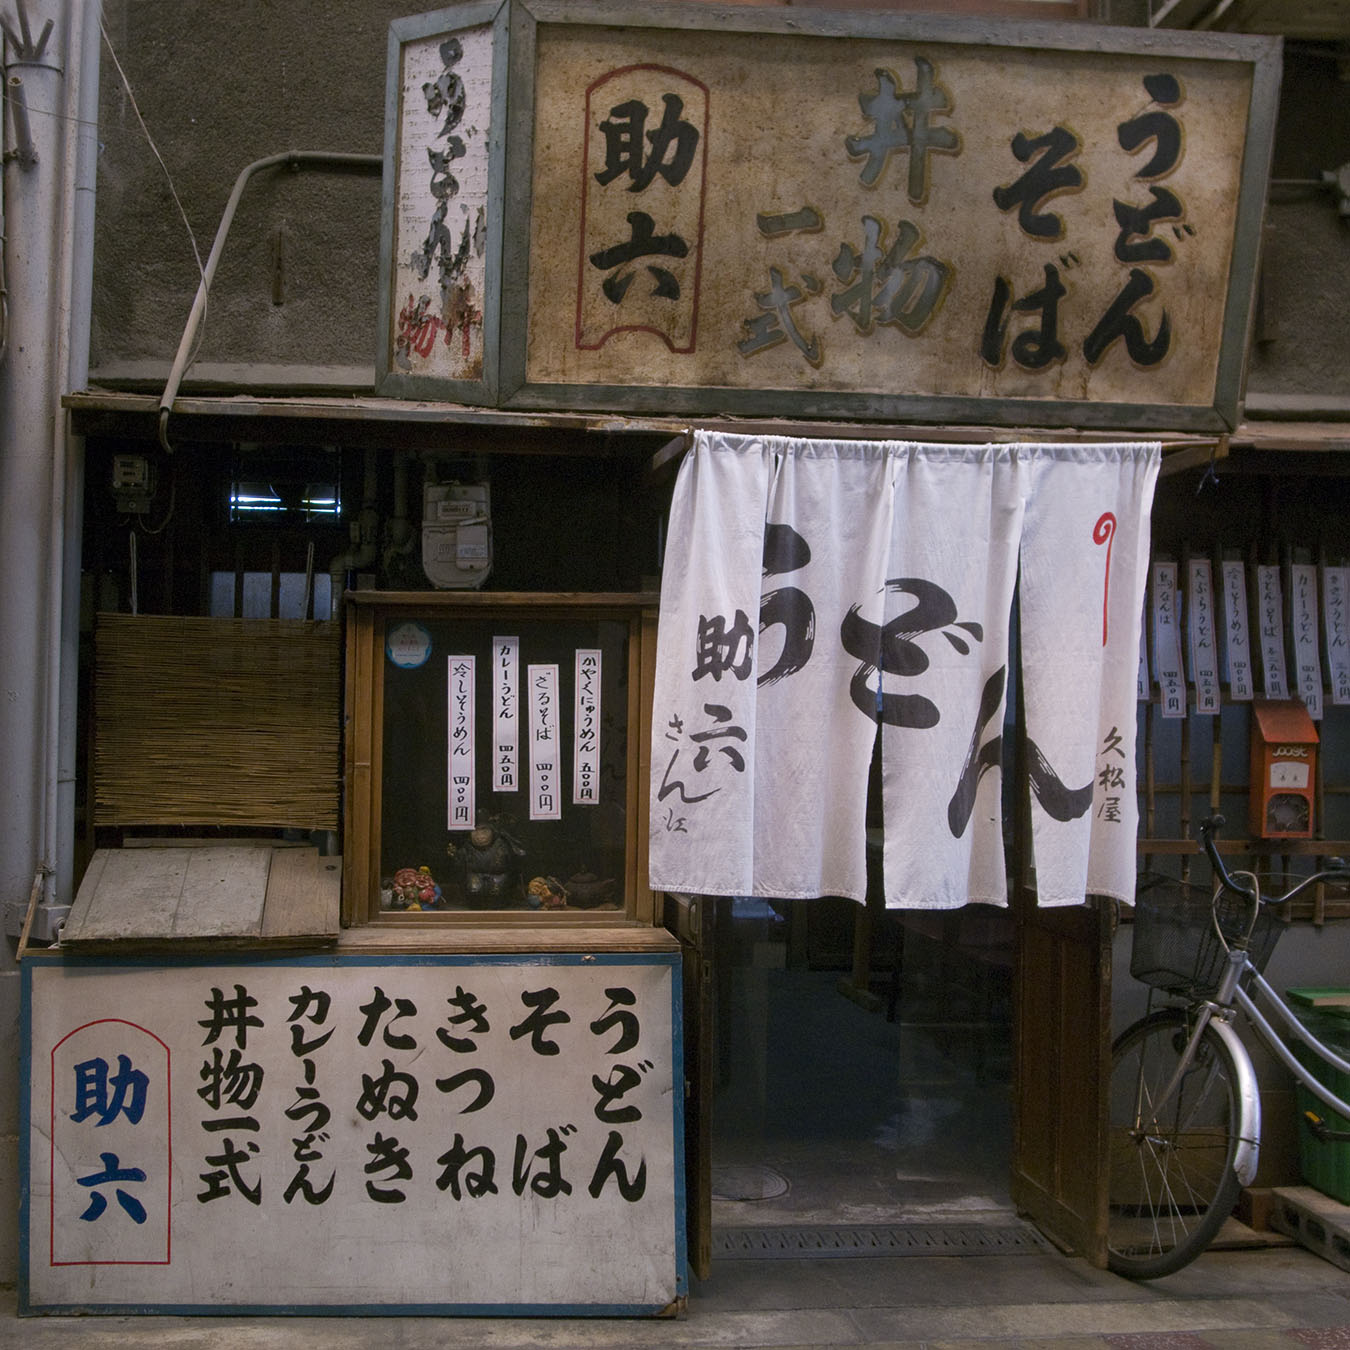 うどん
そば
丼物
一式
助六
うどん
丼物
うどん
助六
さん江
久松屋
かやくにゅうめん 五〇〇円
ざるそば 四〇〇円
カレーうどん 四五〇円
冷しそうめん 四〇〇円
きざみうどん
カレーうどん 四五〇円
うどん・そば
冷しそうめん 四〇〇円
天ぷらうどん
うどん
そば
きつね
たぬき
カレーうどん
丼物一式
助六